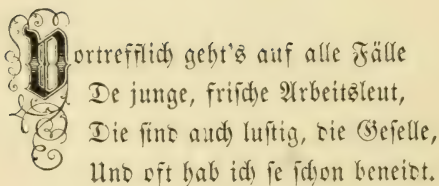 Vortrefflich geht's auf alle Fälle
De junge, frische Arbeitsleut,
Die sind auch lustig, die Geselle,
Und oft hab ich se schon beneidt.